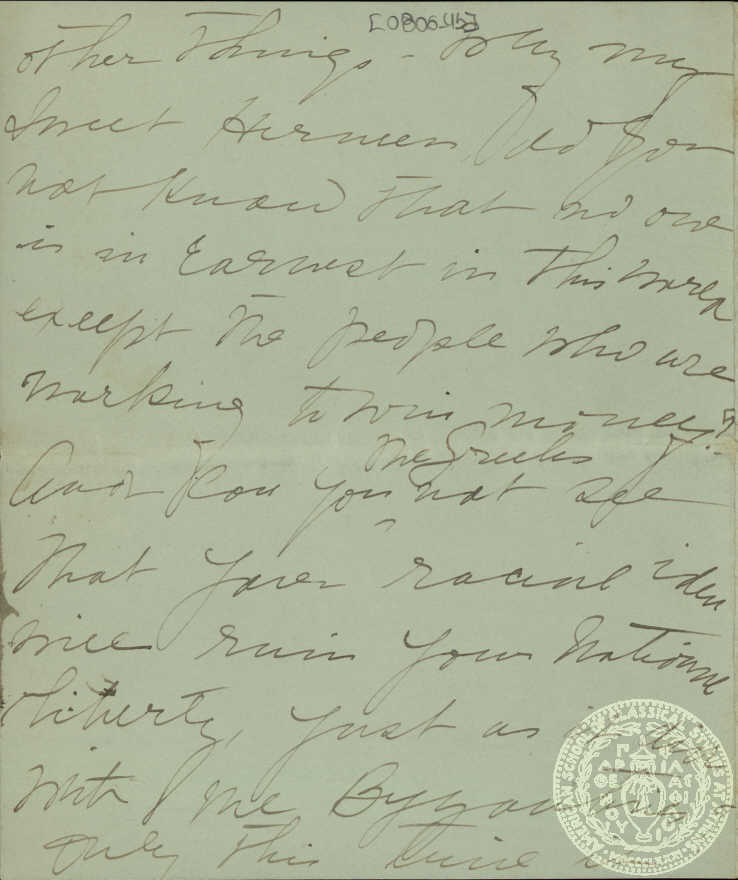 other things - Why my
Sweet Hermes, did you
not know that no one
is in earnest in this world
except the people who are
working to win money?
the Greeks
And you not see
that your racial idea
will ruin your National
Liberty, just as it did
with the Byzantines -
only this time
AMERICAN SCHOOL OF CLASSICAL STUDIES AT ATHENS